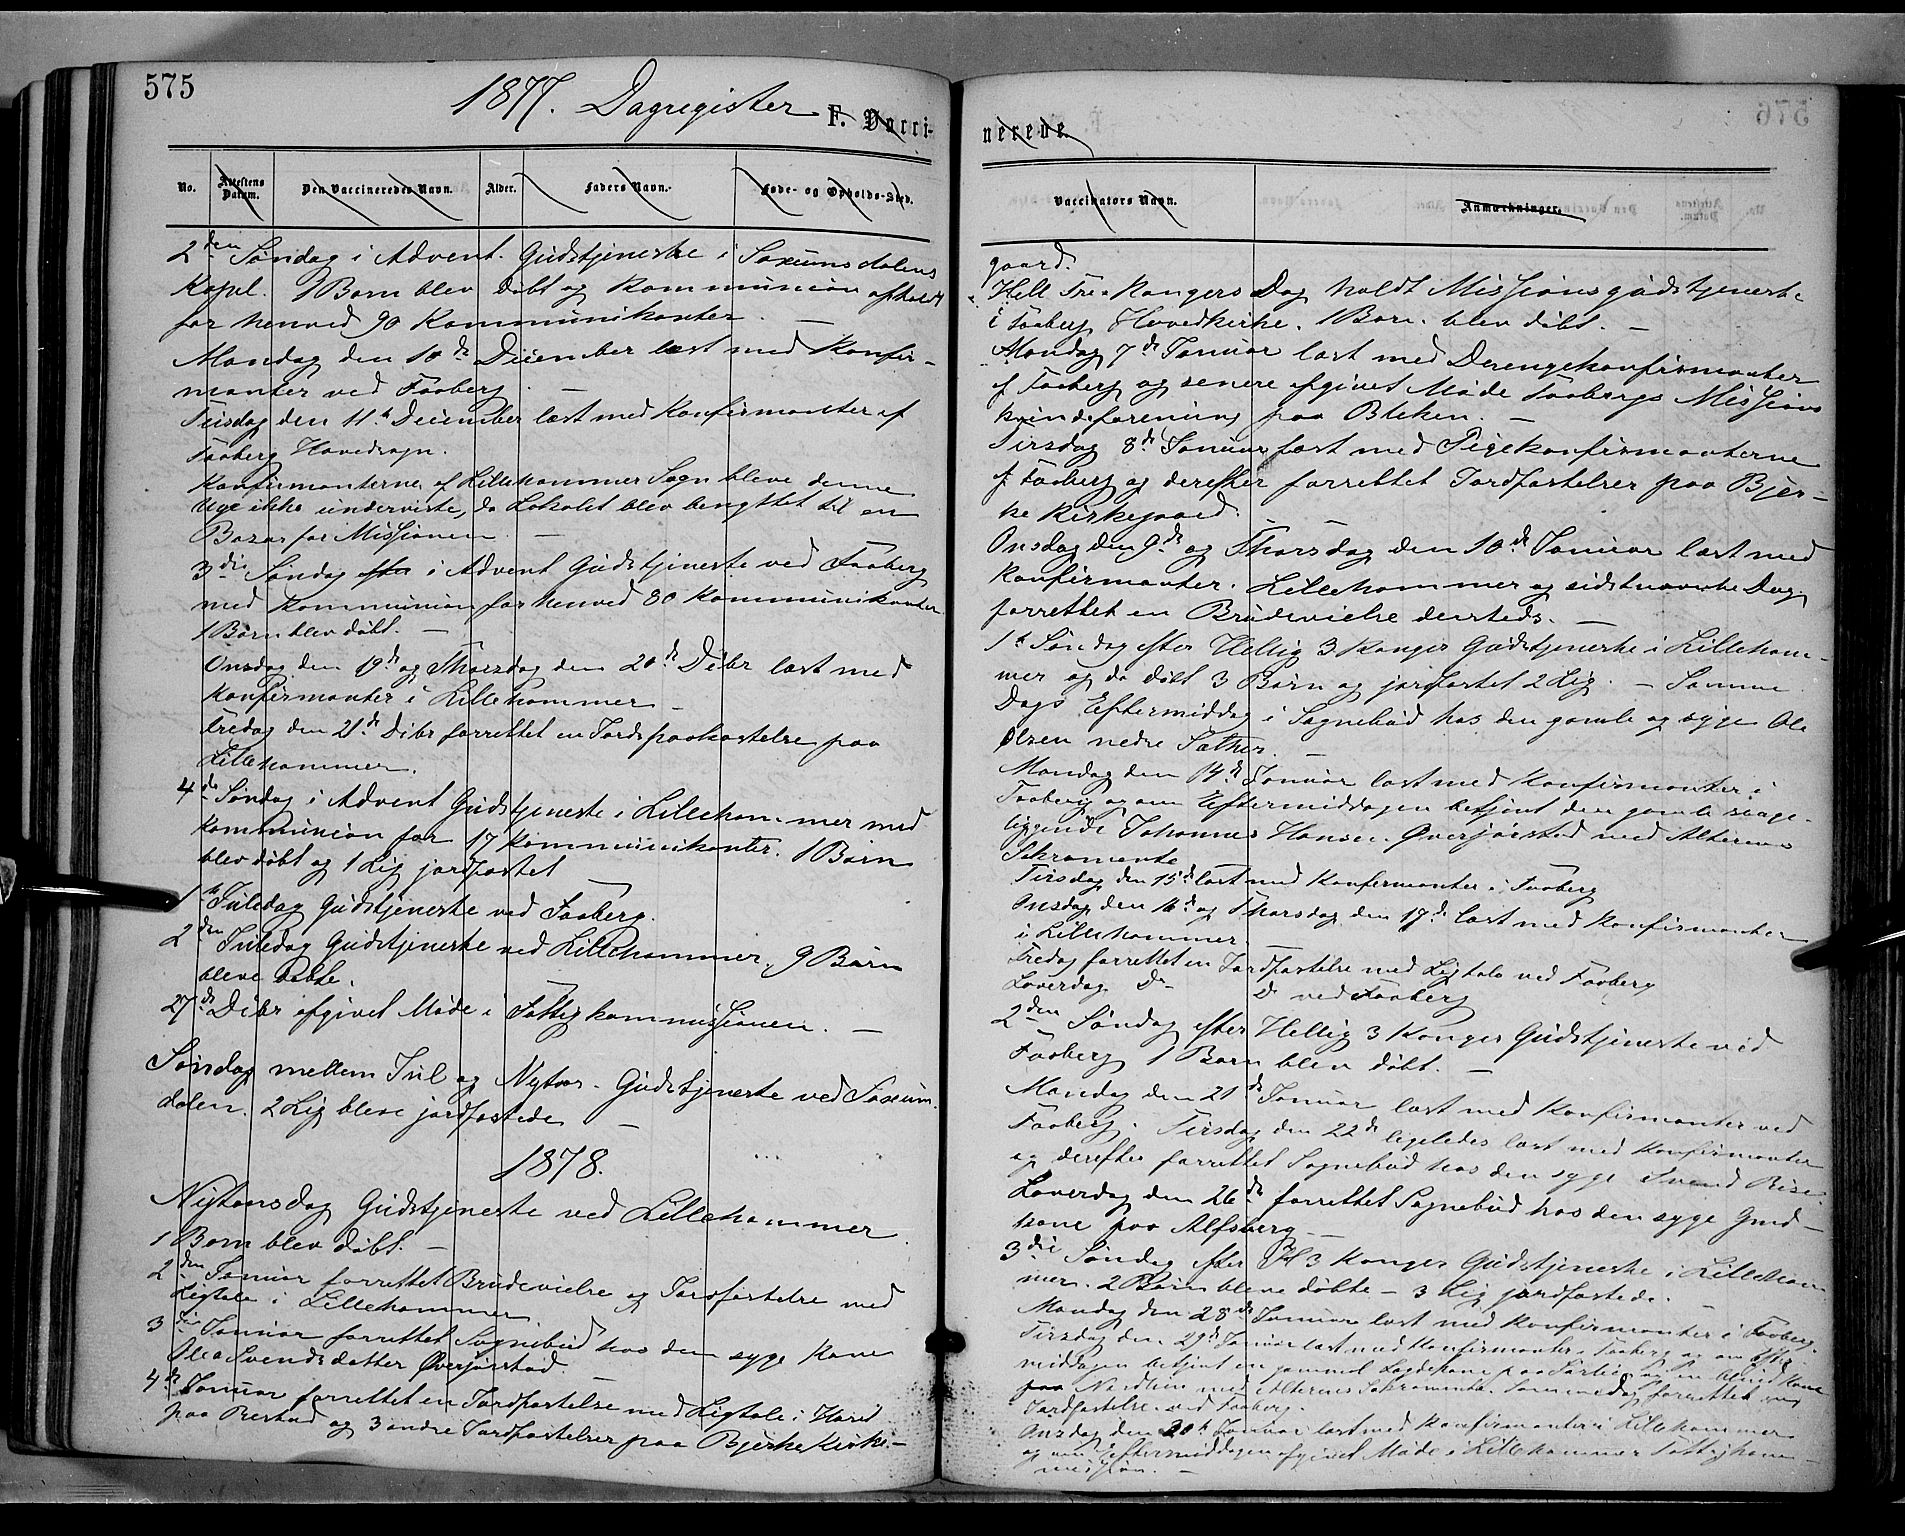 575
1877. Dagregister F. Vacci-
No. Attestens Datum. Den Vaccineredes Navn. Alder. Faders Navn. Føde- og Opholds-Sted.
2den Søndag i Advent. Gudstjeneste i Saxumsdalens
Kapel. 1 Barn blev døbt og Kommunion afholdt
for henved 90 Kommunikanter. —
Mandag den 10de December læst med Konfir-
manter ved Faaberg. —
Tirsdag den 11te December læst med Konfirmanter af
Faaberg Hovedsogn.
Konfirmanterne af Lillehammer Sogn bleve denne
Uge ikke underviste, da Lokalet blev benyttet til en
Bazar for Missionen. —
3die Søndag efter i Advent Gudstjeneste ved Faaberg
med Kommunion for henved 80 Kommunikanter.
1 Barn blev døbt. —
Onsdag den 19de og Thorsdag den 20de Dcbr læst med
Konfirmanter i Lillehammer —
Fredag den 21de Dcbr forrettet en Jordspaakastelse paa
Lillehammer.
4de Søndag i Advent Gudstjeneste i Lillehammer med
Kommunion for 17 Kommunikanter. 1 Barn
blev døbt og 1 Lig jordfæstet
1ste Juledag Gudstjeneste ved Faaberg.
2den Juledag Gudstjeneste ved Lillehammer. 9 Børn
bleve døbte.
27de Dcbr afgivet Møde i Fattigkommissionen. —
Søndag mellem Jul og Nytaar. Gudstjeneste ved Saxum-
dalen. 2 Lig bleve jordfæstede —
1878.
Nytaarsdag Gudstjeneste ved Lillehammer.
1 Barn blev døbt. —
2den Januar forrettet Brudevielse og Jordfæstelse med
Ligtale i Lillehammer
3die Januar forrettet Sognebud hos den syge Kone
Olea Svendsdatter Øverjørstad. —
4de Januar forrettet en Jordfæstelse med Ligtale i Huset
paa og 3 andre Jordfæstelser paa Bjerke Kirke-
576
nerede.
Vaccinators Navn. Anmærkninger.
gaard.
Hell. Tre Kongers Dag holdt Missionsgudstjeneste
i Faaberg Hovedkirke. 1 Barn blev døbt. —
Mandag 7de Januar læst med Drengekonfirmanter
af Faaberg og senere afgivet Møde Faabergs Missions
Kvindeforening paa Bleken. —
Tirsdag 8de Januar læst med Pigekonfirmanterne
af Faaberg og derefter forrettet Jordfæstelser paa Bjer-
ke Kirkegaard. —
Onsdag den 9de og Thorsdag den 10de Januar læst med
Konfirmanter i Lillehammer og sidstnævnte Dag
forrettet en Brudevielse dersteds. —
1ste Søndag efter Hellig 3 Konger Gudstjeneste i Lilleham-
mer og da døbt 3 Børn og jordfæstet 2 Lig. — Samme
Dags Eftermiddag i Sognebud hos den gamle og syge Ole
Olsen nedre Sæther. —
Mandag den 14de Januar læst med Konfirmanter i
Faaberg og om Eftermiddagen betjent den gamle senge-
liggende Johannes Hansen Øverjørstad med Alterens
Sakramente
Tirsdag den 15de læst med Konfirmanter i Faaberg
Onsdag den 16de og Thorsdag den 17de læst med Konfirmanter
i Lillehammer. —
Fredag forrettet en Jordfæstelse med Ligtale ved Faaberg
Løverdag Do Do ved Faaberg
2den Søndag efter Hellig 3 Konger Gudstjeneste ved
Faaberg 1 Barn blev døbt. —
Mandag den 21de Januar læst med Konfirmanter ved
Faaberg. Tirsdag den 22de ligeledes læst med Konfirmanter
og derefter forrettet Sognebud hos den syge Svend
Løverdag den 26de forrettet Sognebud hos den syge Gaard-
kone paa Alfsberg —
3die Søndag efter H 3 Konger Gudstjeneste i Lilleham-
mer. 2 Børn bleve døbte — 3 Lig jordfæstede. —
Mandag den 28de Januar læst med Konfirmanter i Faaberg.
Tirsdag den 29de Januar læst med Konfirmanter i Faaberg og om Efter-
middagen betjent en gammel paa og en Kone
paa med Alterens Sakramente. Samme Dag forrettet
Jordfæstelse ved Faaberg.
Onsdag den 30te Januar læst med Konfirmanter i Lillehammer
og om Eftermiddagen afgivet Møde i Lillehammer Fattigkom-
mission. —